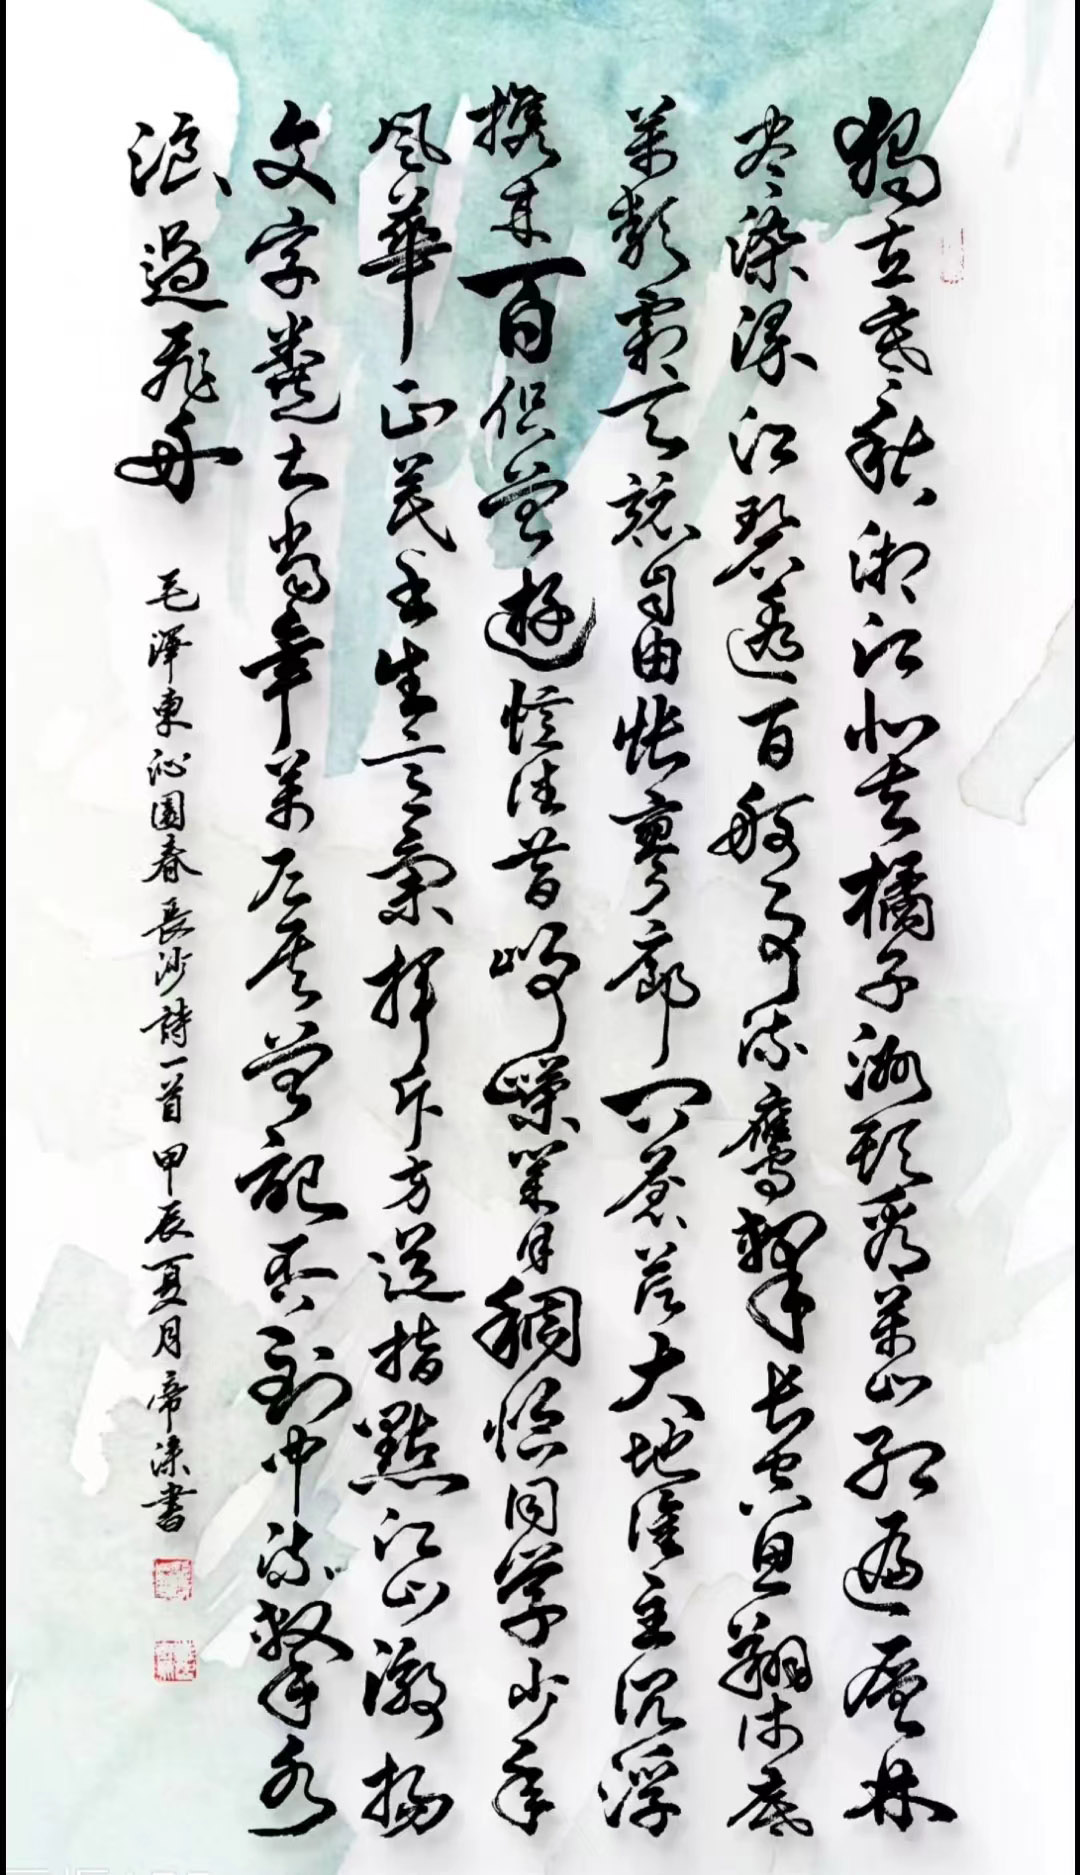 獨立寒秋湘江北去橘子洲頭看萬山紅遍層林
盡染漫江碧透百舸爭流鷹擊長空魚翔淺底
萬類霜天競自由悵寥廓問蒼茫大地誰主沉浮
攜來百侶曾遊憶往昔崢嶸歲月稠恰同學少年
風華正茂書生意氣揮斥方遒指點江山激揚
文字糞土當年萬戶侯曾記否到中流擊水
浪遏飛舟
毛澤東沁園春長沙詩一首甲辰夏月帝書